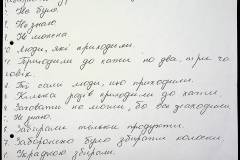 Не було.
Не знаю.
Не можна.
Люди, які приходили.
Приходили до хати по два, три чо
ловік.
Ті самі люди, що приходили.
Кілька разів приходили до хати.
Заховати не можна, бо все знаходили.
Не знаю.
Забирали тільки продукти.
Заборонено було збирати колоски.
Украдкою збирали.